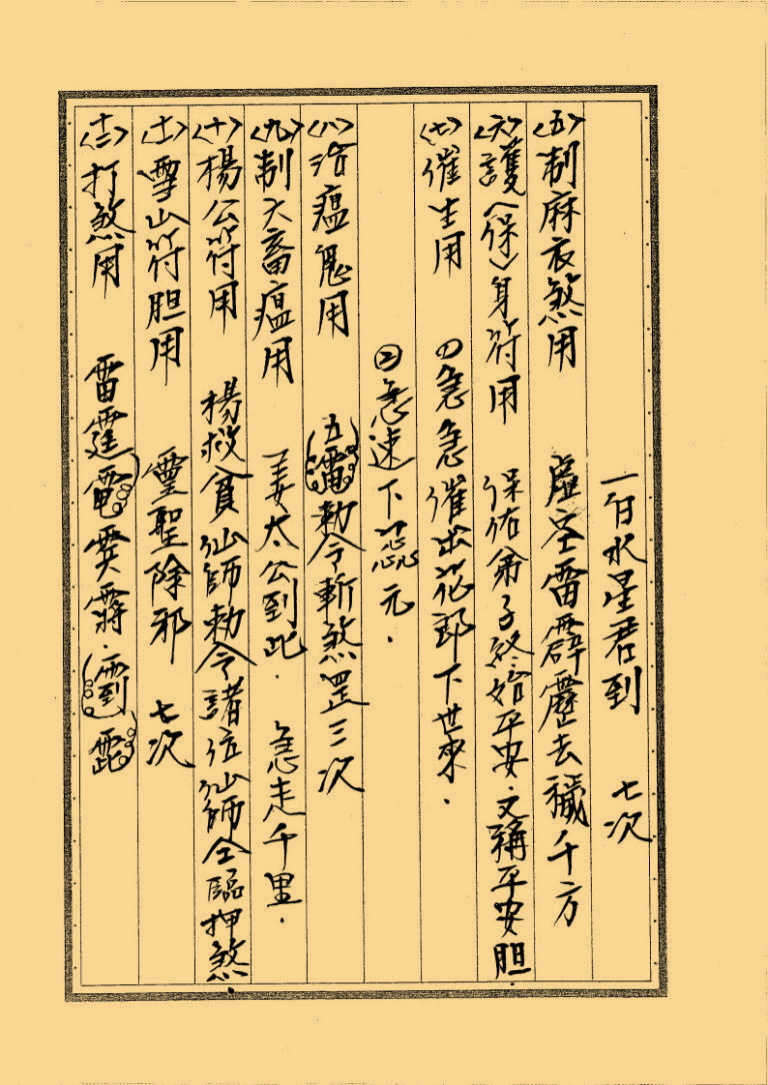 一白水星君到 七次
〈五〉制麻衣煞用 虛空雷霹靂去穢千方
〈六〉護〈保〉身符用 保佑弟子終始平安．又稱平安胆．
〈七〉催生用 ①急急催出花郎下世來．
②急速下 元．
〈八〉治瘟鬼用 五 勅令斬煞罡三次
〈九〉制六畜瘟用 姜太公到此． 急走千里．
〈十〉楊公符用 楊救貧仙師勅令諸位仙師仝臨押煞．
〈十一〉雪山符胆用 靈聖除邪 七次
〈十二〉打煞用 雷霆